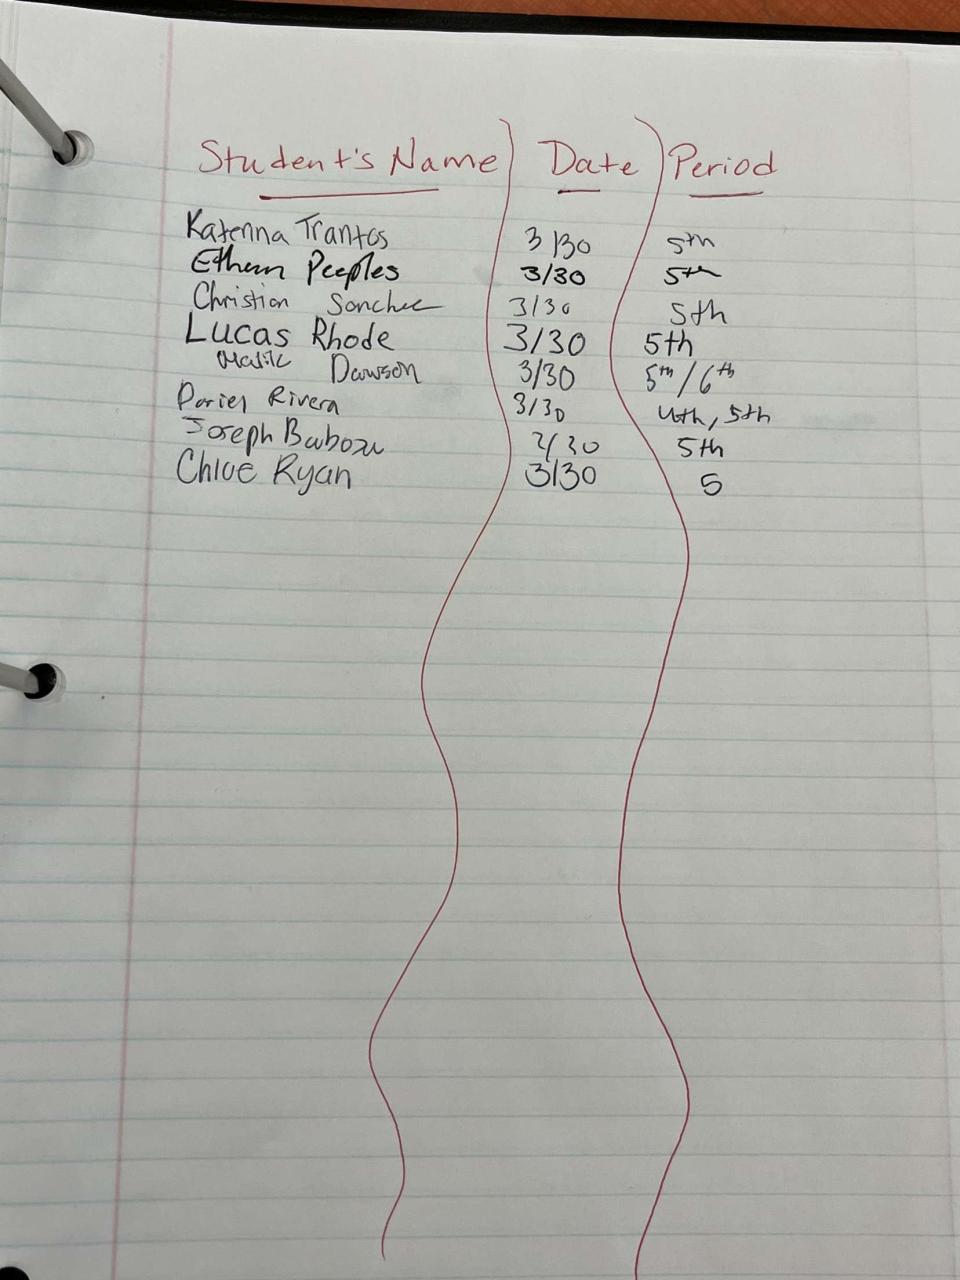 Student's Name Date Period
Katerina Trantos 3/30 5th
Ethan Peeples 3/30 5th
Christian 3/30 5th
Lucas Rhode 3/30 5th
Malik Dawson 3/30 5th/6th
Dariel Rivera 3/30 4th, 5th
Joseph 3/30 5th
Chloe Ryan 3/30 5